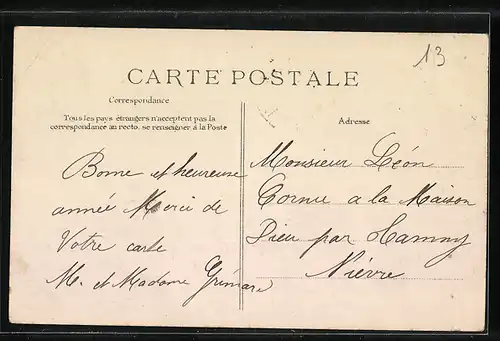 13
CARTE POSTALE
Correspondance
Tous les pays étrangers n'acceptent pas la
correspondance au recto. se renseigner à la Poste
Bonne et heureuse
année Merci de
Votre carte
M. et Madame Grimard
Adresse
Monsieur Léon
Cornu a la Maison
Dieu par Tannay
Nièvre